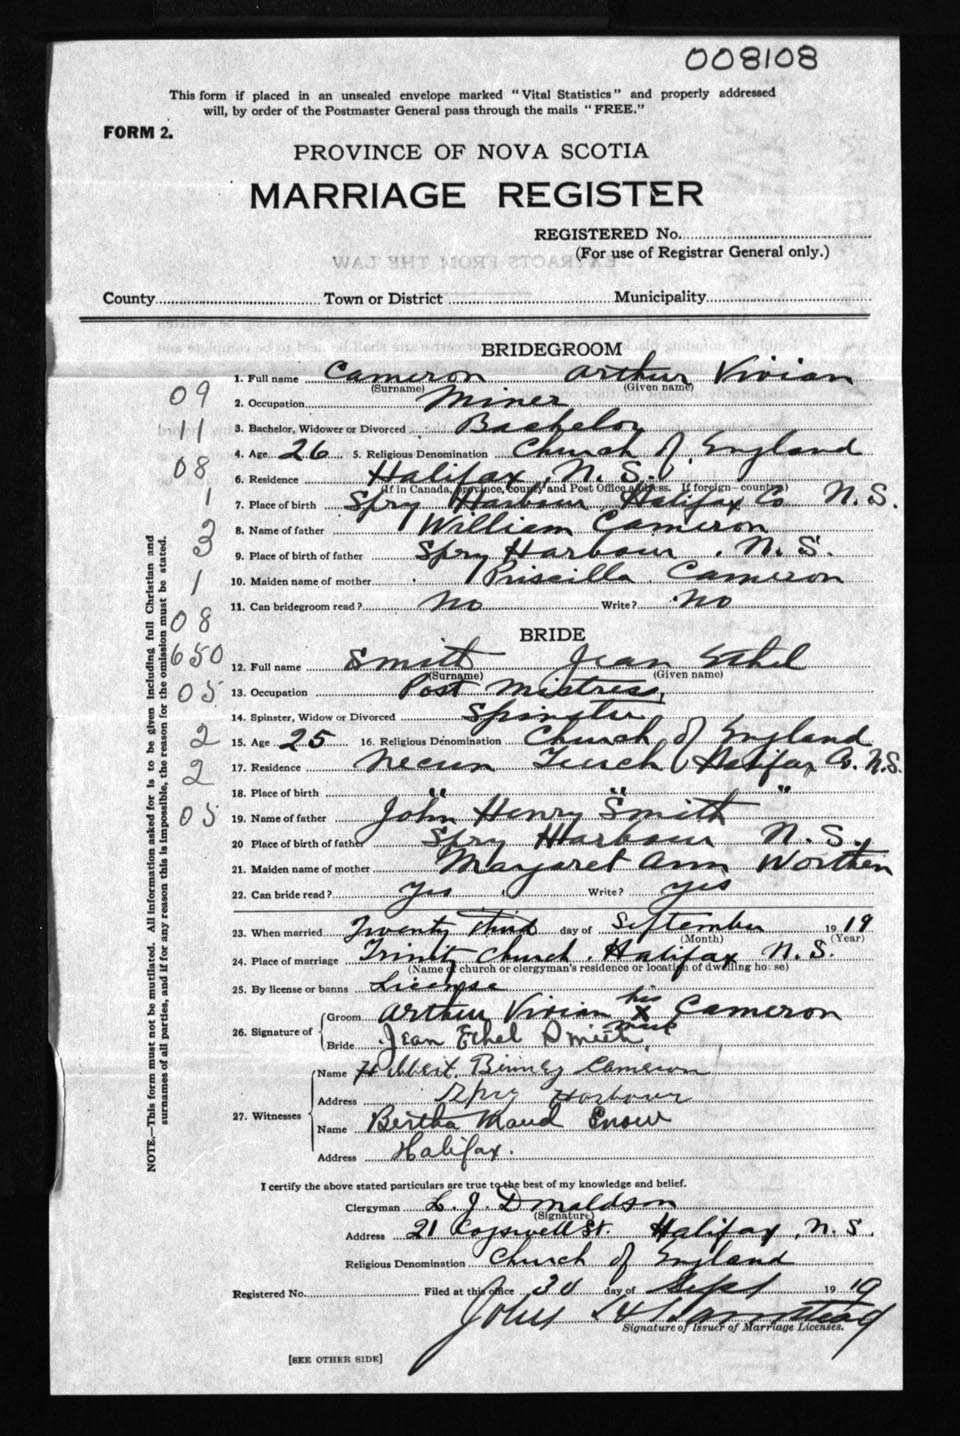 008108
This form if placed in an unsealed envelope marked "Vital Statistics" and properly addressed
will, by order of the Postmaster General pass through the mails "FREE."
FORM 2.
PROVINCE OF NOVA SCOTIA
MARRIAGE REGISTER
REGISTERED No.
(For use of Registrar General only.)
EXTRACTS FROM THE LAW
County Town or District Municipality
BRIDEGROOM
1. Full name Cameron Arthur Vivian
(Surname) (Given name)
09
2. Occupation Miner
11
3. Bachelor, Widower or Divorced Bachelor
4. Age 26 5. Religious Denomination Church of England
08
6. Residence Halifax, N.S.
(If in Canada, province, county and Post Office address. If foreign—country)
1
7. Place of birth Spry Harbour Halifax Co N.S.
8. Name of father William Cameron
3
9. Place of birth of father Spry Harbour, N.S.
1
10. Maiden name of mother Priscilla Cameron
11. Can bridegroom read? No Write? No
08
BRIDE
650
12. Full name Smith Jean Ethel
(Surname) (Given name)
05
13. Occupation Post Mistress
14. Spinster, Widow or Divorced Spinster
2
15. Age 25 16. Religious Denomination Church of England
2
17. Residence Necum Teuch Halifax Co. N.S.
18. Place of birth " " "
05
19. Name of father John Henry Smith
20 Place of birth of father Spry Harbour N.S.
21. Maiden name of mother Margaret Ann Worthen
22. Can bride read? yes Write? yes
23. When married Twenty Third day of September 1919
(Month) (Year)
24. Place of marriage Trinity Church, Halifax N.S.
(Name of church or clergyman's residence or location of dwelling house)
25. By license or banns License
26. Signature of
Groom Arthur Vivian his X mark Cameron
Bride Jean Ethel Smith
27. Witnesses
Name Binney Cameron
Address Spry Harbour
Name Bertha Maud Snow
Address Halifax.
I certify the above stated particulars are true to the best of my knowledge and belief.
Clergyman L. J. Donaldson
(Signature)
Address 21 Cogswell St. Halifax, N.S.
Religious Denomination Church of England
Registered No. Filed at this office 30 day of Sept 1919
John
Signature of Issuer of Marriage Licenses.
[SEE OTHER SIDE]
NOTE.—This form must not be mutilated. All information asked for is to be given including full Christian and
surnames of all parties, and if for any reason this is impossible, the reason for the omission must be stated.